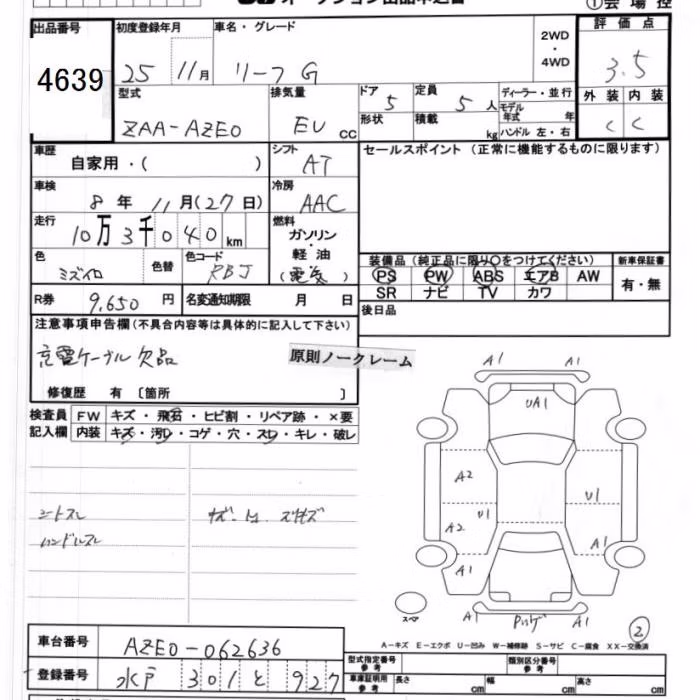 出品番号 初度登録年月 車名・グレード 2WD・4WD 評価点
4639 25 11月 リーフG 3.5
型式 排気量 ドア 5 定員 5人 ディーラー・並行 外装 内装
ZAA-AZE0 EV cc 形状 積載 kg モデル年式 年 C C
ハンドル 左・右
車歴 自家用・( ) シフト AT セールスポイント(正常に機能するものに限ります)
車検 8年 11月(27日) 冷房 AAC
走行 10万3千040km 燃料 ガソリン・軽油(電気)
色 ミズイロ 色替 色コード RBJ 装備品(純正品に限り○をつけてください) 新車保証書
PS PW ABS エアB AW 有・無
SR ナビ TV カワ
R券 9,650円 名変通知期限 月 日 後日品
注意事項申告欄(不具合内容等は具体的に記入して下さい)
充電ケーブル欠品 原則ノークレーム
修復歴 有 〔箇所 〕
検査員 FW キズ・飛石・ヒビ割・リペア跡・×要
記入欄 内装 キズ・汚レ・コゲ・穴・スレ・キレ・破レ
シートスレ
ハンドルスレ
A1 A1
UA1
A2
U1
A2 U1
A1
A1
A1 A1
スペア
2
A-キズ E-エクボ U-凹み W-補修跡 S-サビ C-腐食 XX-交換済
車台番号 AZE0-062636
型式指定番号 参考 類別区分番号 参考
登録番号 水戸 301 と 927
車庫証明用 参考 長さ cm 幅 cm 高さ cm